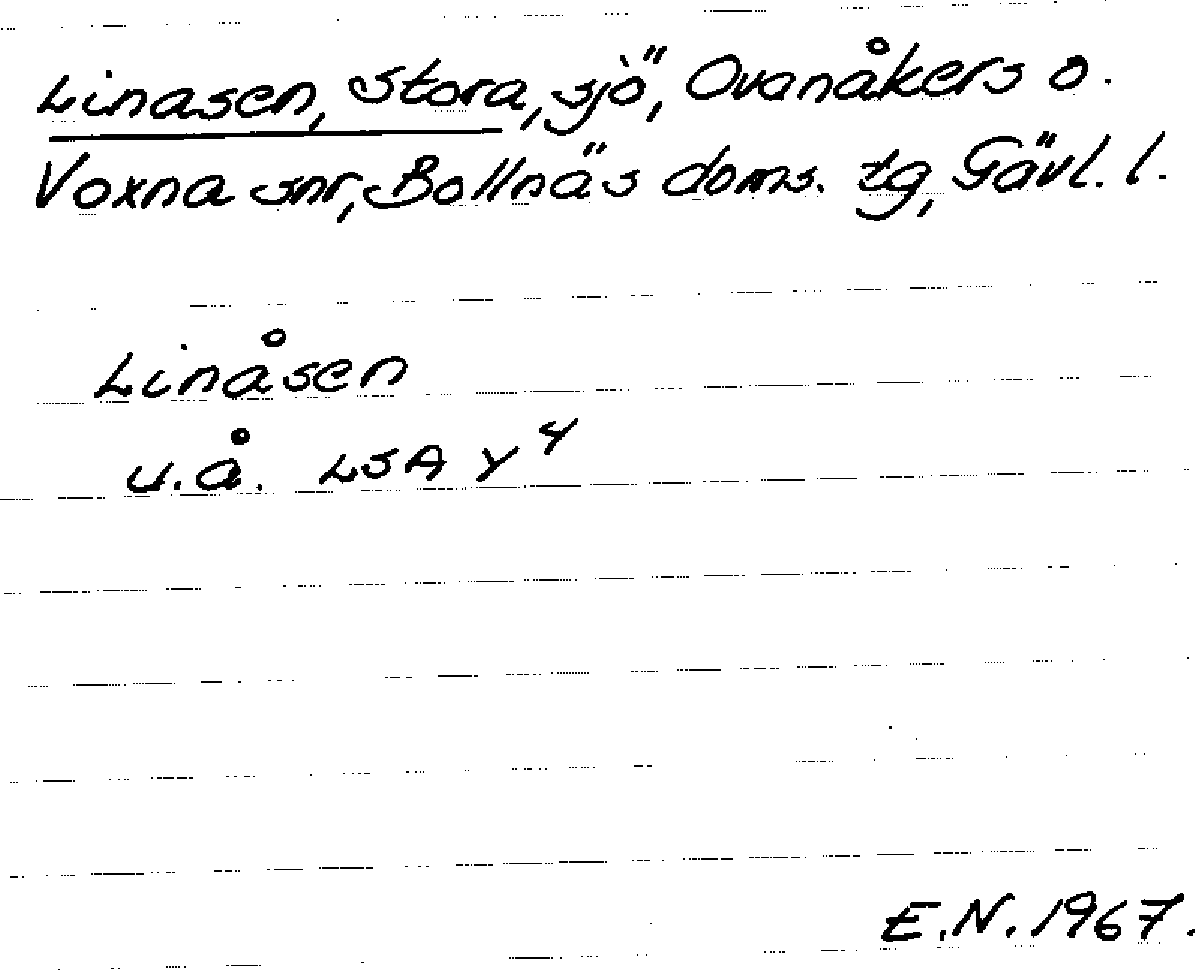 Linasen, Stora, sjö, Ovanåkers o.
Voxna snr, Bollnäs doms. tg, Gävl. l.
Linåsen
u.å. LSA Y 4
E.N. 1967.